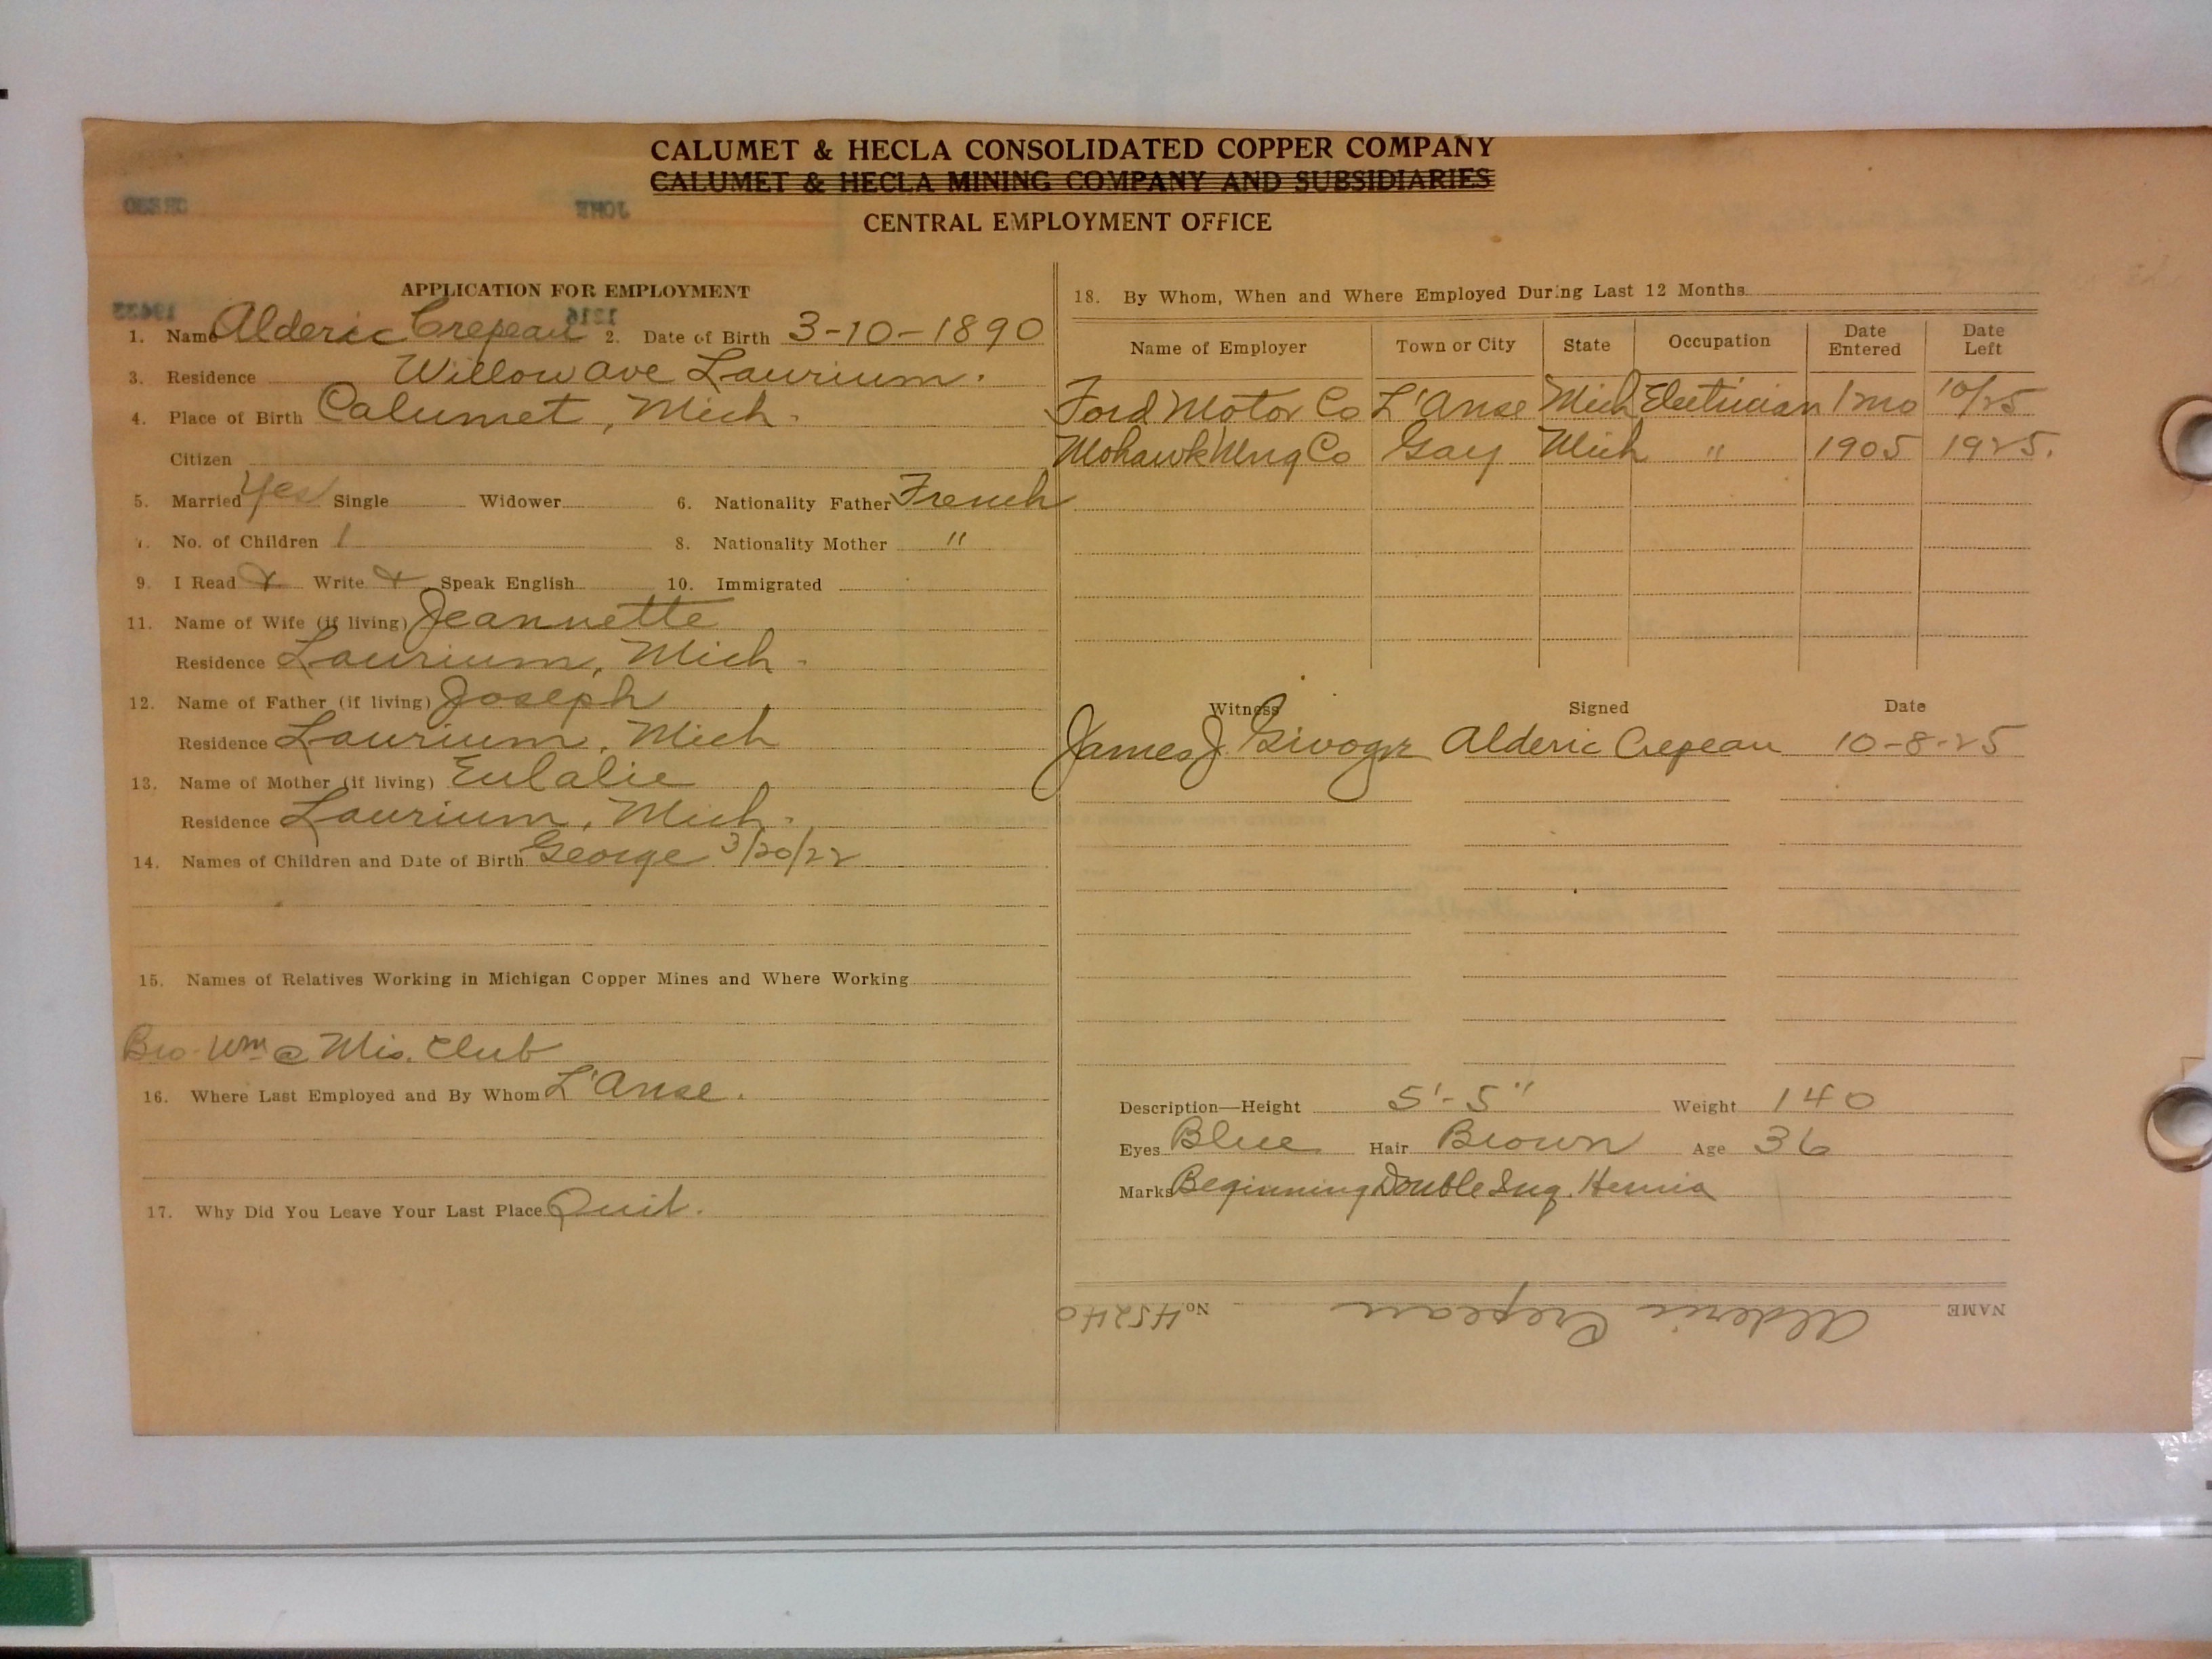 CALUMET & HECLA CONSOLIDATED COPPER COMPANY
CALUMET & HECLA MINING COMPANY AND SUBSIDIARIES
CENTRAL EMPLOYMENT OFFICE
APPLICATION FOR EMPLOYMENT
1. Name Alderic Crepeau 2. Date of Birth 3-10-1890
3. Residence Willow ave Laurium.
4. Place of Birth Calumet, Mich.
Citizen
5. Married Yes Single Widower 6. Nationality Father French
7. No. of Children 1 8. Nationality Mother "
9. I Read Write Speak English 10. Immigrated
11. Name of Wife (if living) Jeannette
Residence Laurium, Mich.
12. Name of Father (if living) Joseph
Residence Laurium, Mich
13. Name of Mother (if living) Eulalie
Residence Laurium, Mich.
14. Names of Children and Date of Birth George 3/20/22
15. Names of Relatives Working in Michigan Copper Mines and Where Working
Bro Wm @ Mis. Club
16. Where Last Employed and By Whom L'Anse.
17. Why Did You Leave Your Last Place Quit.
18. By Whom, When and Where Employed During Last 12 Months
Name of Employer Town or City State Occupation Date Entered Date Left
Ford Motor Co L'Anse Mich Electrician 1 mo 10/25
Mohawk Mng Co Gay Mich " 1905 1925.
Witness Signed Date
James J. Alderic Crepeau 10-8-25
Description—Height 5'-5" Weight 140
Eyes Blue Hair Brown Age 36
Marks Beginning Double Ing. Hernia
NAME Alderic Crepeau No. 45240